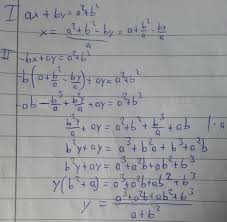 I ax + by = a²+b²
x = (a²+b²-by)/a = a + b²/a - by/a
II -bx+ay = a²+b²
-b(a + b²/a - by/a) + ay = a²+b²
-ab - b³/a + b²y/a + ay = a²+b²
b²y/a + ay = a²+b² + b³/a + ab | ·a
b²y + a²y = a³+b²a + b³+a²b
b²y + a²y = a³+a²b+ab²+b³
y(b²+a) = a³+a²b+ab²+b³
y = (a³+a²b+ab²+b³)/(a+b²)